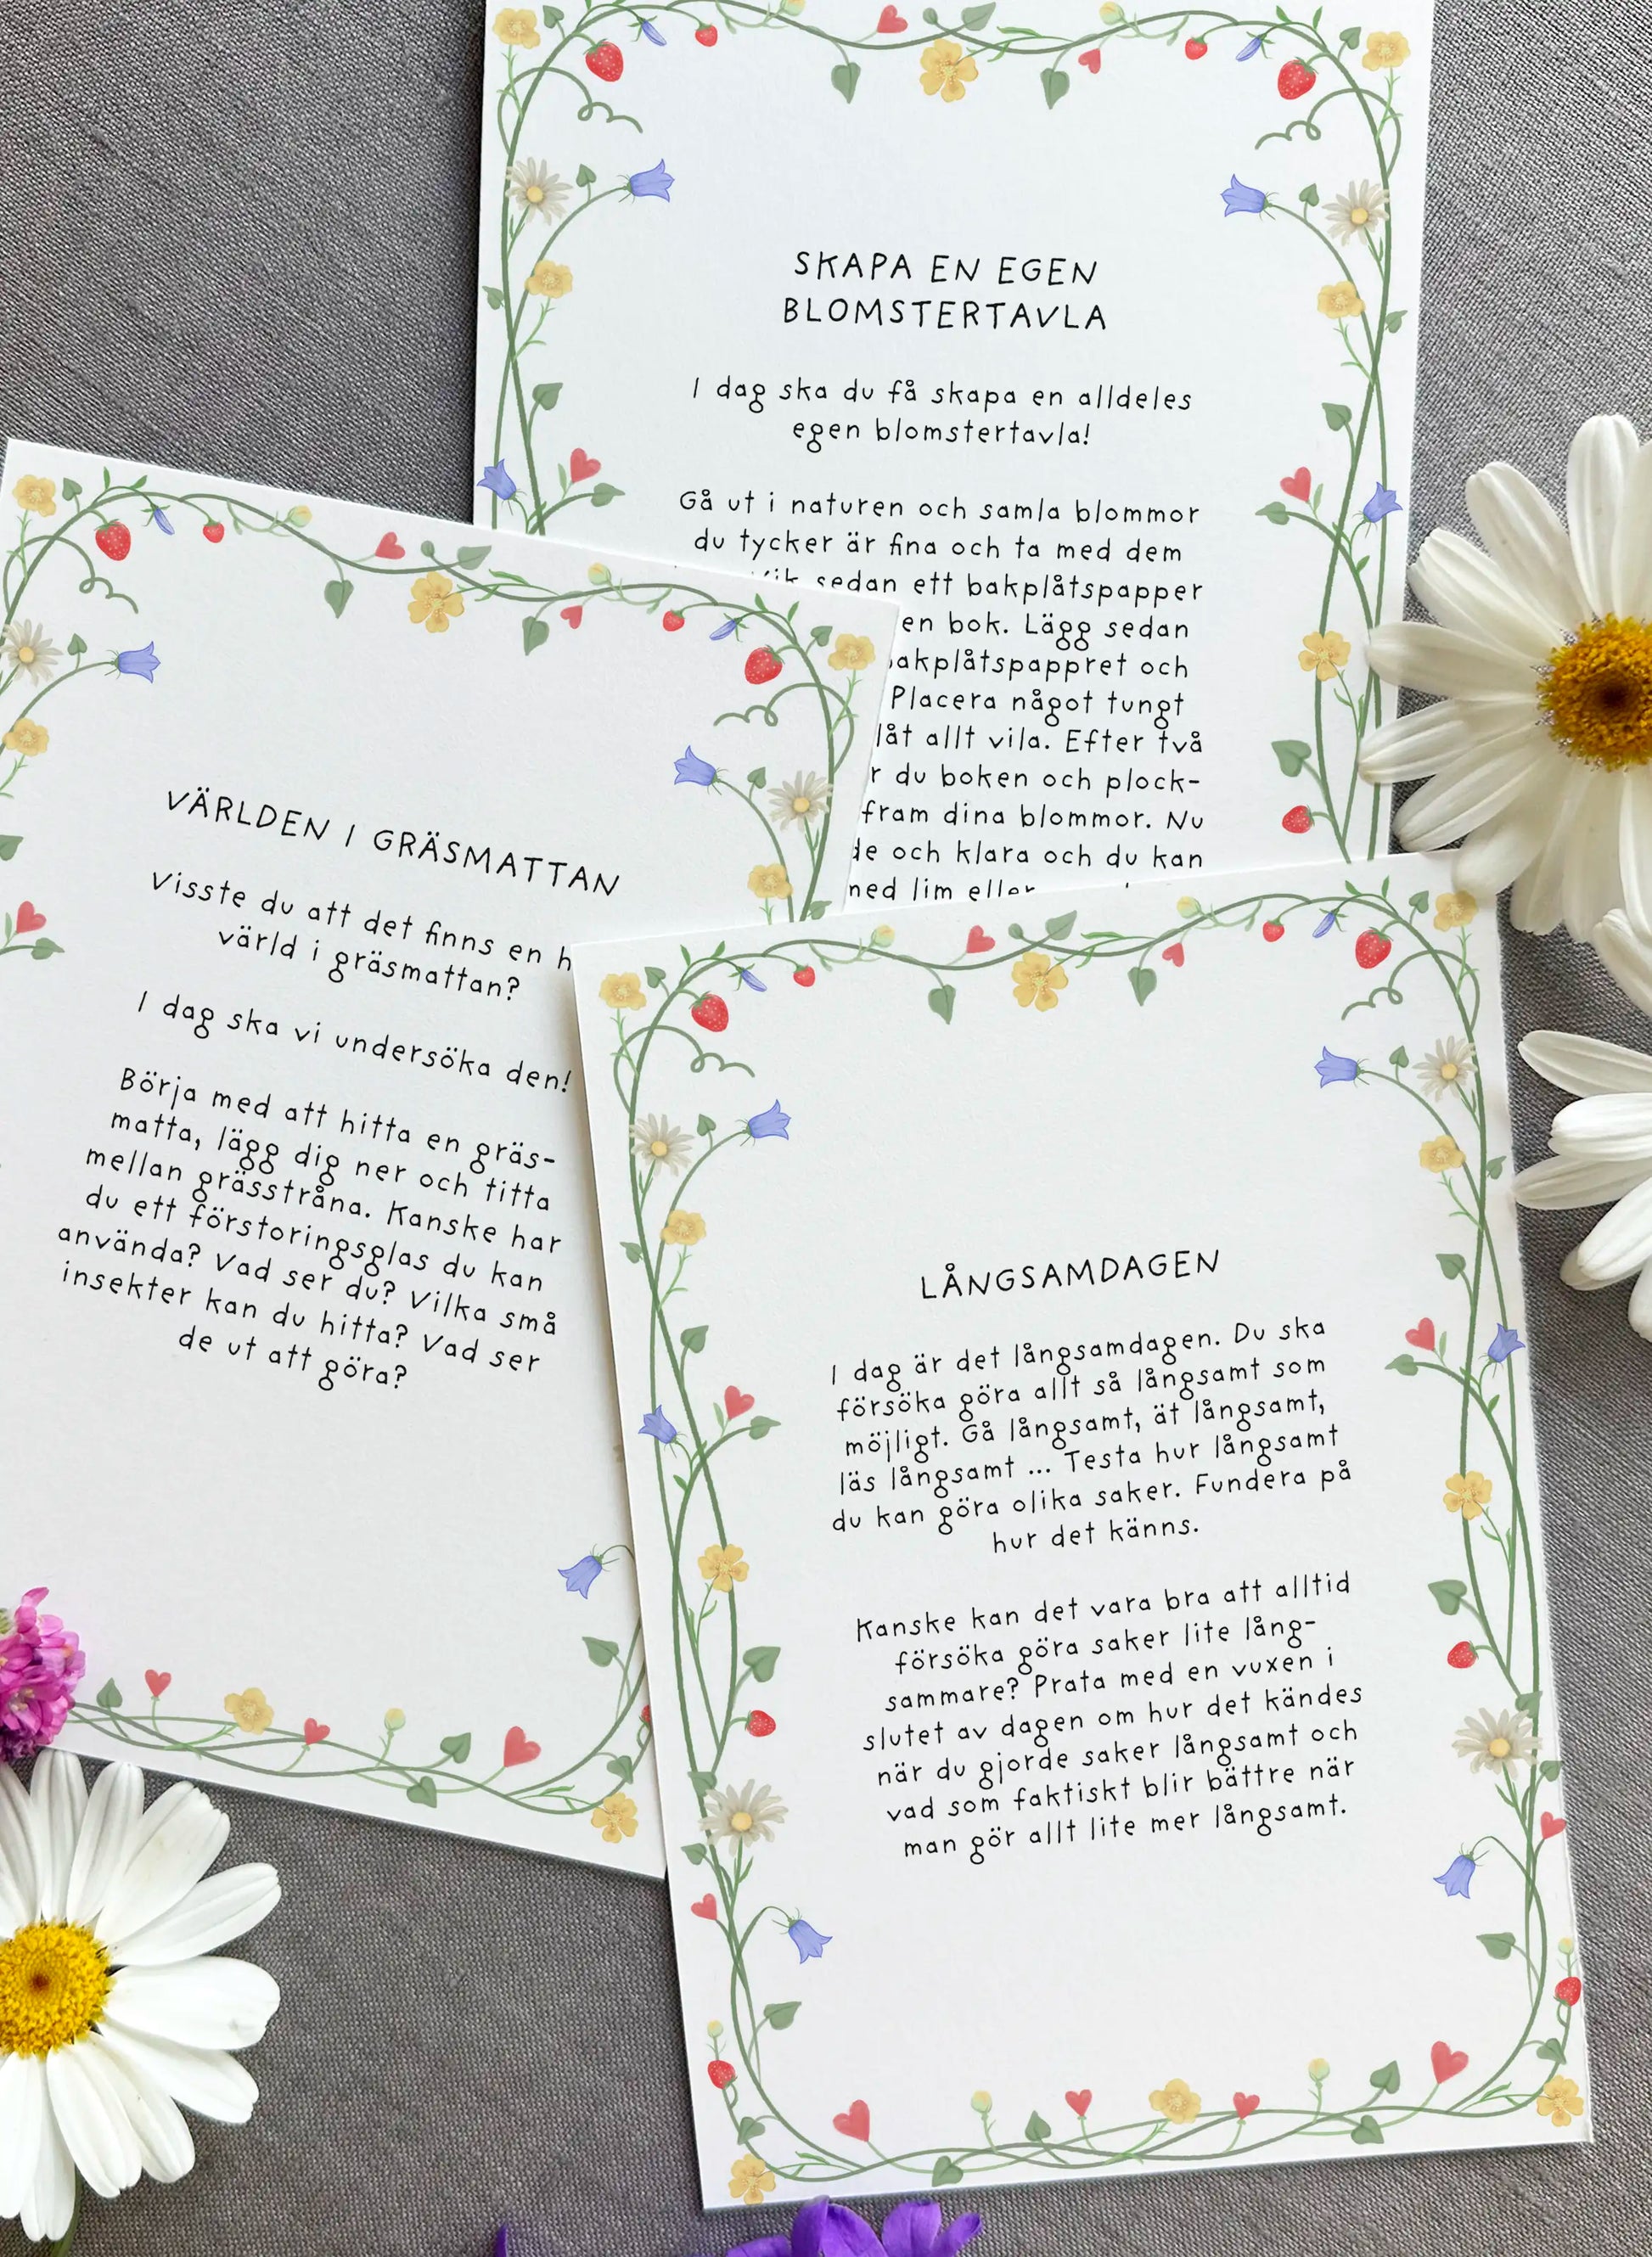 SKAPA EN EGEN
BLOMSTERTAVLA
I dag ska du få skapa en alldeles
egen blomstertavla!
Gå ut i naturen och samla blommor
du tycker är fina och ta med dem
sedan ett bakplåtspapper
en bok. Lägg sedan
akplåtspappret och
Placera något tungt
låt allt vila. Efter två
r du boken och plock-
fram dina blommor. Nu
de och klara och du kan
med lim eller
VÄRLDEN I GRÄSMATTAN
Visste du att det finns en h
värld i gräsmattan?
I dag ska vi undersöka den!
Börja med att hitta en gräs-
matta, lägg dig ner och titta
mellan grässtråna. Kanske har
du ett förstoringsglas du kan
använda? Vad ser du? Vilka små
insekter kan du hitta? Vad ser
de ut att göra?
LÅNGSAMDAGEN
I dag är det långsamdagen. Du ska
försöka göra allt så långsamt som
möjligt. Gå långsamt, ät långsamt,
läs långsamt ... Testa hur långsamt
du kan göra olika saker. Fundera på
hur det känns.
Kanske kan det vara bra att alltid
försöka göra saker lite lång-
sammare? Prata med en vuxen i
slutet av dagen om hur det kändes
när du gjorde saker långsamt och
vad som faktiskt blir bättre när
man gör allt lite mer långsamt.